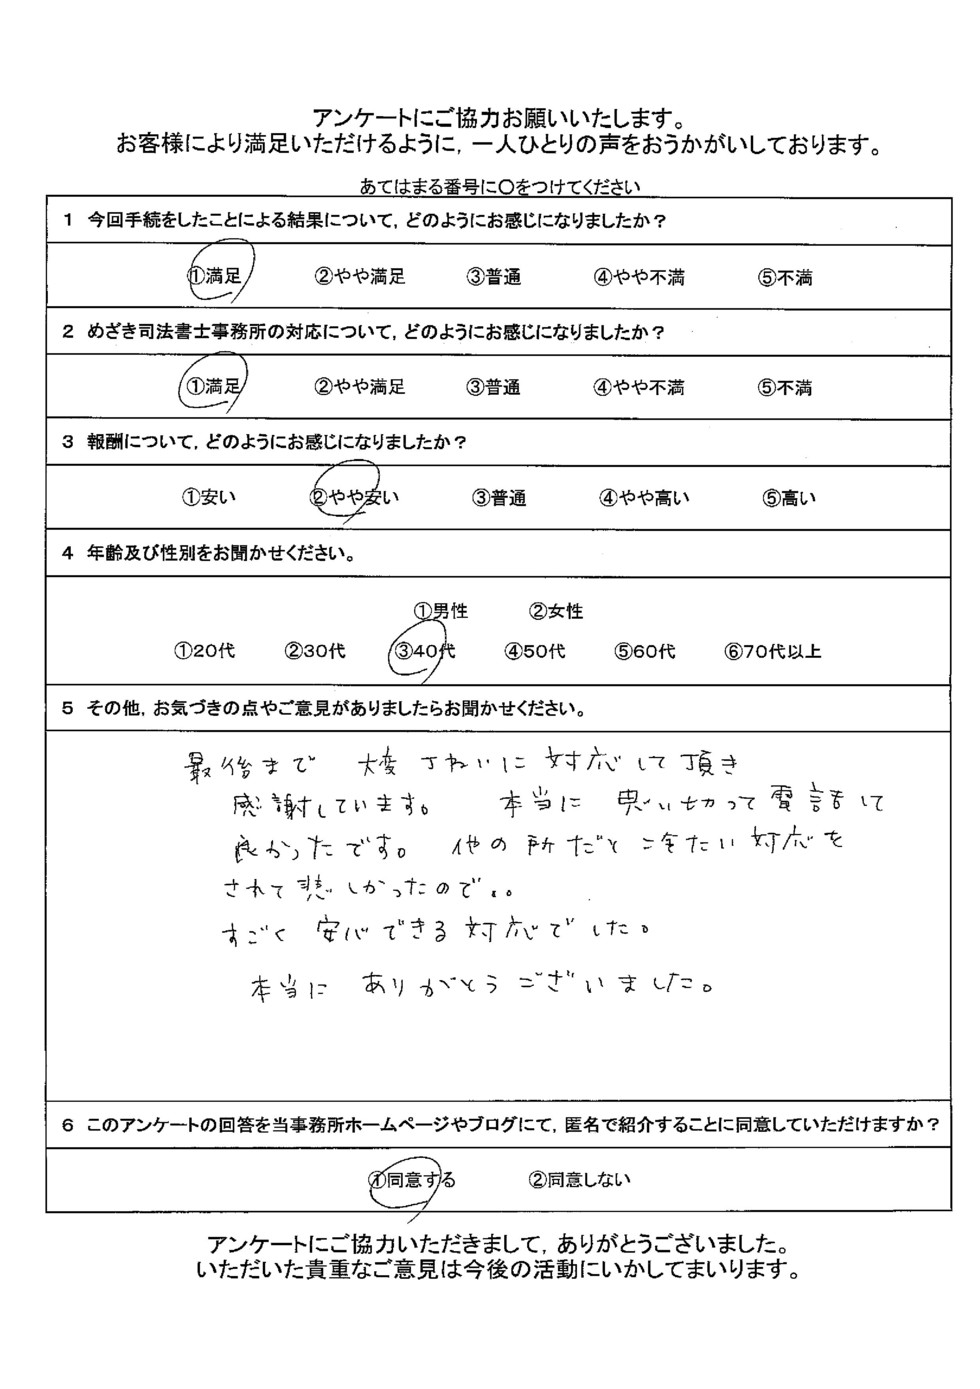 アンケートにご協力お願いいたします。
お客様により満足いただけるように，一人ひとりの声をおうかがいしております。
あてはまる番号に〇をつけてください
1 今回手続をしたことによる結果について，どのようにお感じになりましたか？
①満足 ②やや満足 ③普通 ④やや不満 ⑤不満
2 めざき司法書士事務所の対応について，どのようにお感じになりましたか？
①満足 ②やや満足 ③普通 ④やや不満 ⑤不満
3 報酬について，どのようにお感じになりましたか？
①安い ②やや安い ③普通 ④やや高い ⑤高い
4 年齢及び性別をお聞かせください。
①男性 ②女性
①20代 ②30代 ③40代 ④50代 ⑤60代 ⑥70代以上
5 その他，お気づきの点やご意見がありましたらお聞かせください。
最後まで 大変 きれいに 対応して頂き
感謝しています。 本当に 思い切って電話して
良かったです。 他の所だと 対応を
されて悲しかったので。。
すごく 安心できる対応でした。
本当に ありがとうございました。
6 このアンケートの回答を当事務所ホームページやブログにて，匿名で紹介することに同意していただけますか？
①同意する ②同意しない
アンケートにご協力いただきまして，ありがとうございました。
いただいた貴重なご意見は今後の活動にいかしてまいります。